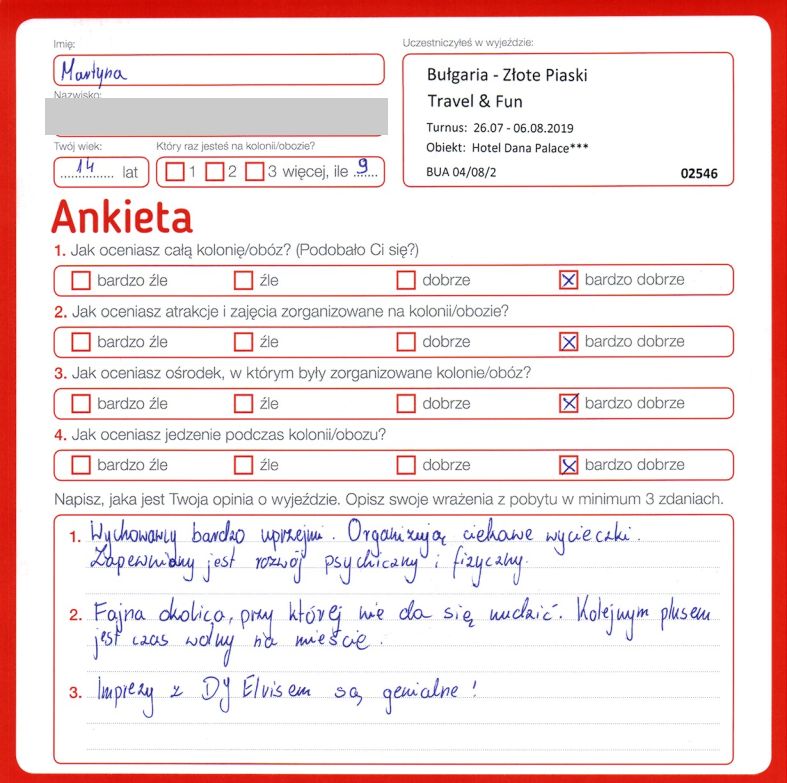 Imię:
Uczestniczyłeś w wyjeździe:
Martyna
Bułgaria - Złote Piaski
Travel & Fun
Nazwisko:
Turnus: 26.07 - 06.08.2019
Obiekt: Hotel Dana Palace***
BUA 04/08/2
02546
Twój wiek:
Który raz jesteś na kolonii/obozie?
14 lat
1 2 3 więcej, ile 9
Ankieta
1. Jak oceniasz całą kolonię/obóz? (Podobało Ci się?)
bardzo źle źle dobrze bardzo dobrze
2. Jak oceniasz atrakcje i zajęcia zorganizowane na kolonii/obozie?
bardzo źle źle dobrze bardzo dobrze
3. Jak oceniasz ośrodek, w którym były zorganizowane kolonie/obóz?
bardzo źle źle dobrze bardzo dobrze
4. Jak oceniasz jedzenie podczas kolonii/obozu?
bardzo źle źle dobrze bardzo dobrze
Napisz, jaka jest Twoja opinia o wyjeździe. Opisz swoje wrażenia z pobytu w minimum 3 zdaniach.
1. Wychowawcy bardzo uprzejmi. Organizują ciekawe wycieczki.
Zapewniony jest rozwój psychiczny i fizyczny.
2. Fajna okolica, przy której nie da się nudzić. Kolejnym plusem
jest czas wolny na mieście.
3. Imprezy z DJ Elvisem są genialne!